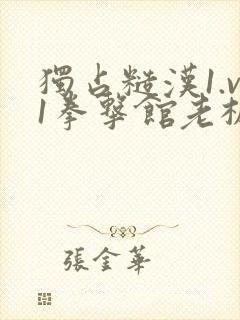 獨占糙漢1.v
1拳擊館老板
張金華